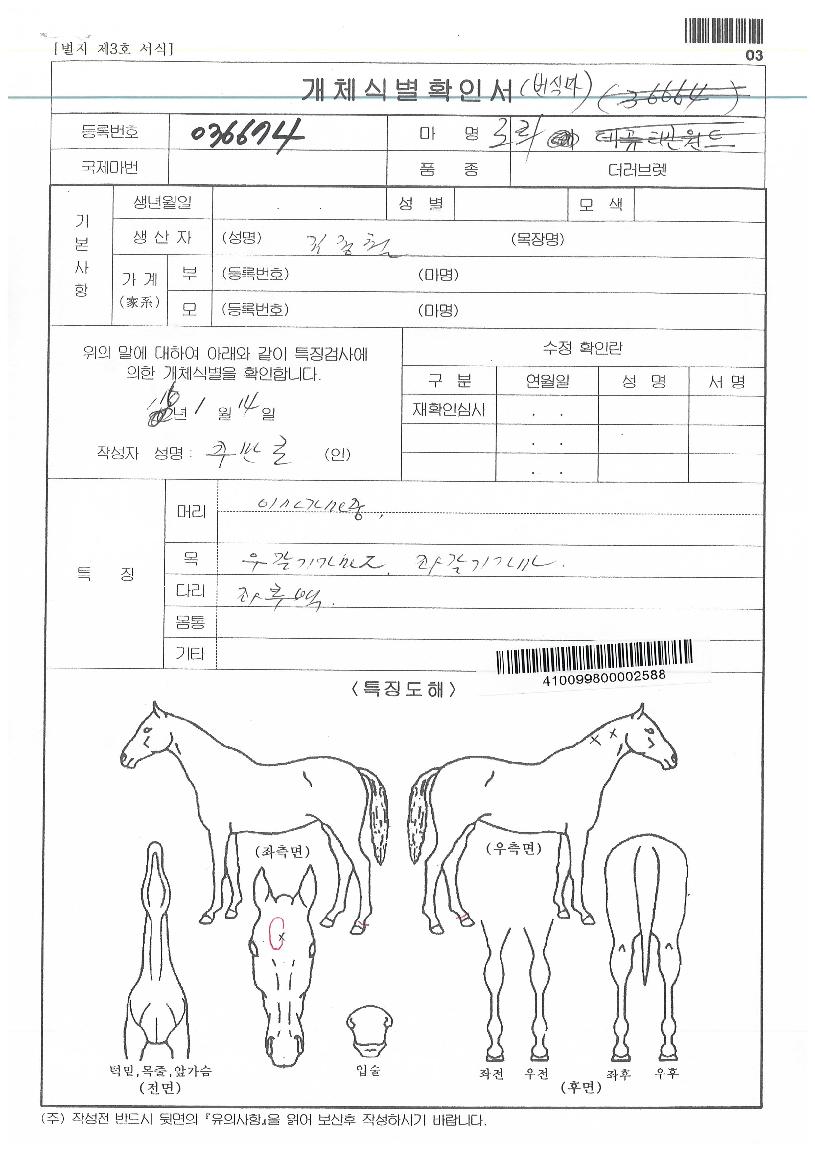 [별지 제3호 서식]
03
개체식별확인서 (번식마) (36664)
등록번호 036674 마 명
국제마번 품 종 더러브렛
기본사항
생년월일 . . 성 별 모 색
생산자 (성명) (목장명)
가계 (家系) 부 (등록번호) (마명)
모 (등록번호) (마명)
위의 말에 대하여 아래와 같이 특징검사에
의한 개체식별을 확인합니다.
년 1 월 14 일
작성자 성명 : (인)
수정 확인란
구 분 연월일 성 명 서 명
재확인심시 . .
. .
. .
특 징
머리
목
다리 좌후백.
몸통
기타
410099800002588
<특징도해>
(좌측면) (우측면)
턱밑,목줄,앞가슴
(전면)
입술
좌전 우전 좌후 우후
(후면)
(주) 작성전 반드시 뒷면의 『유의사항』을 읽어 보신후 작성하시기 바랍니다.